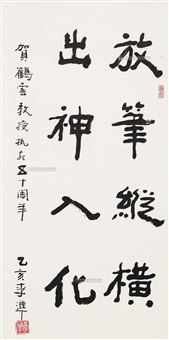 放筆縱橫
出神入化
賀鶴雲教授執教五十周年
乙亥李準